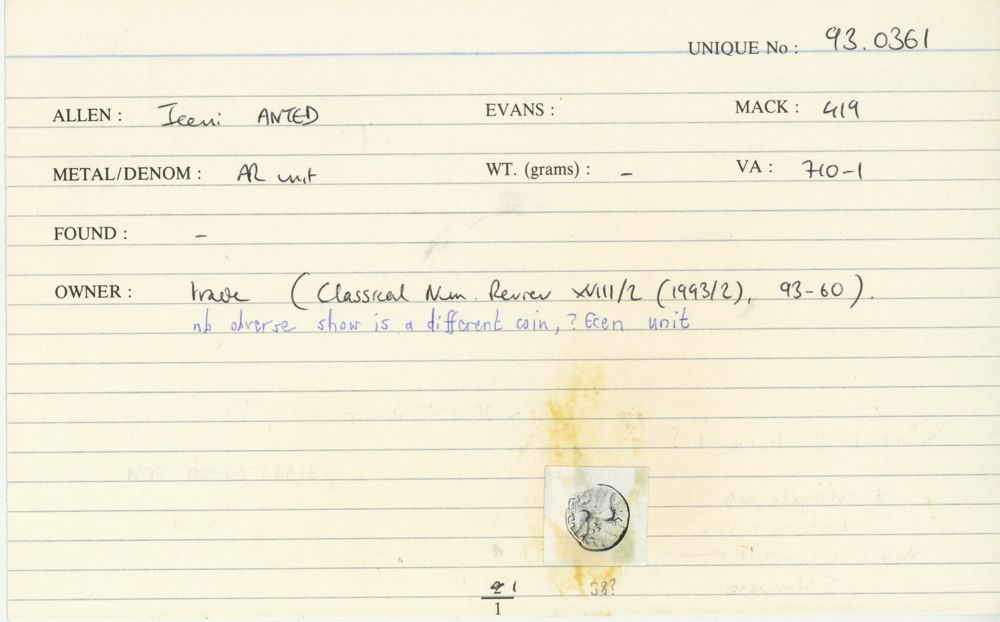 UNIQUE No : 93.0361
ALLEN : Iceni ANTED EVANS : MACK : 419
METAL/DENOM : AR unit WT. (grams) : – VA : 710-1
FOUND : –
OWNER : trade (Classical Num. Review XVIII/2 (1993/2), 93-60).
nb obverse show is a different coin, ? Ecen unit
1
1